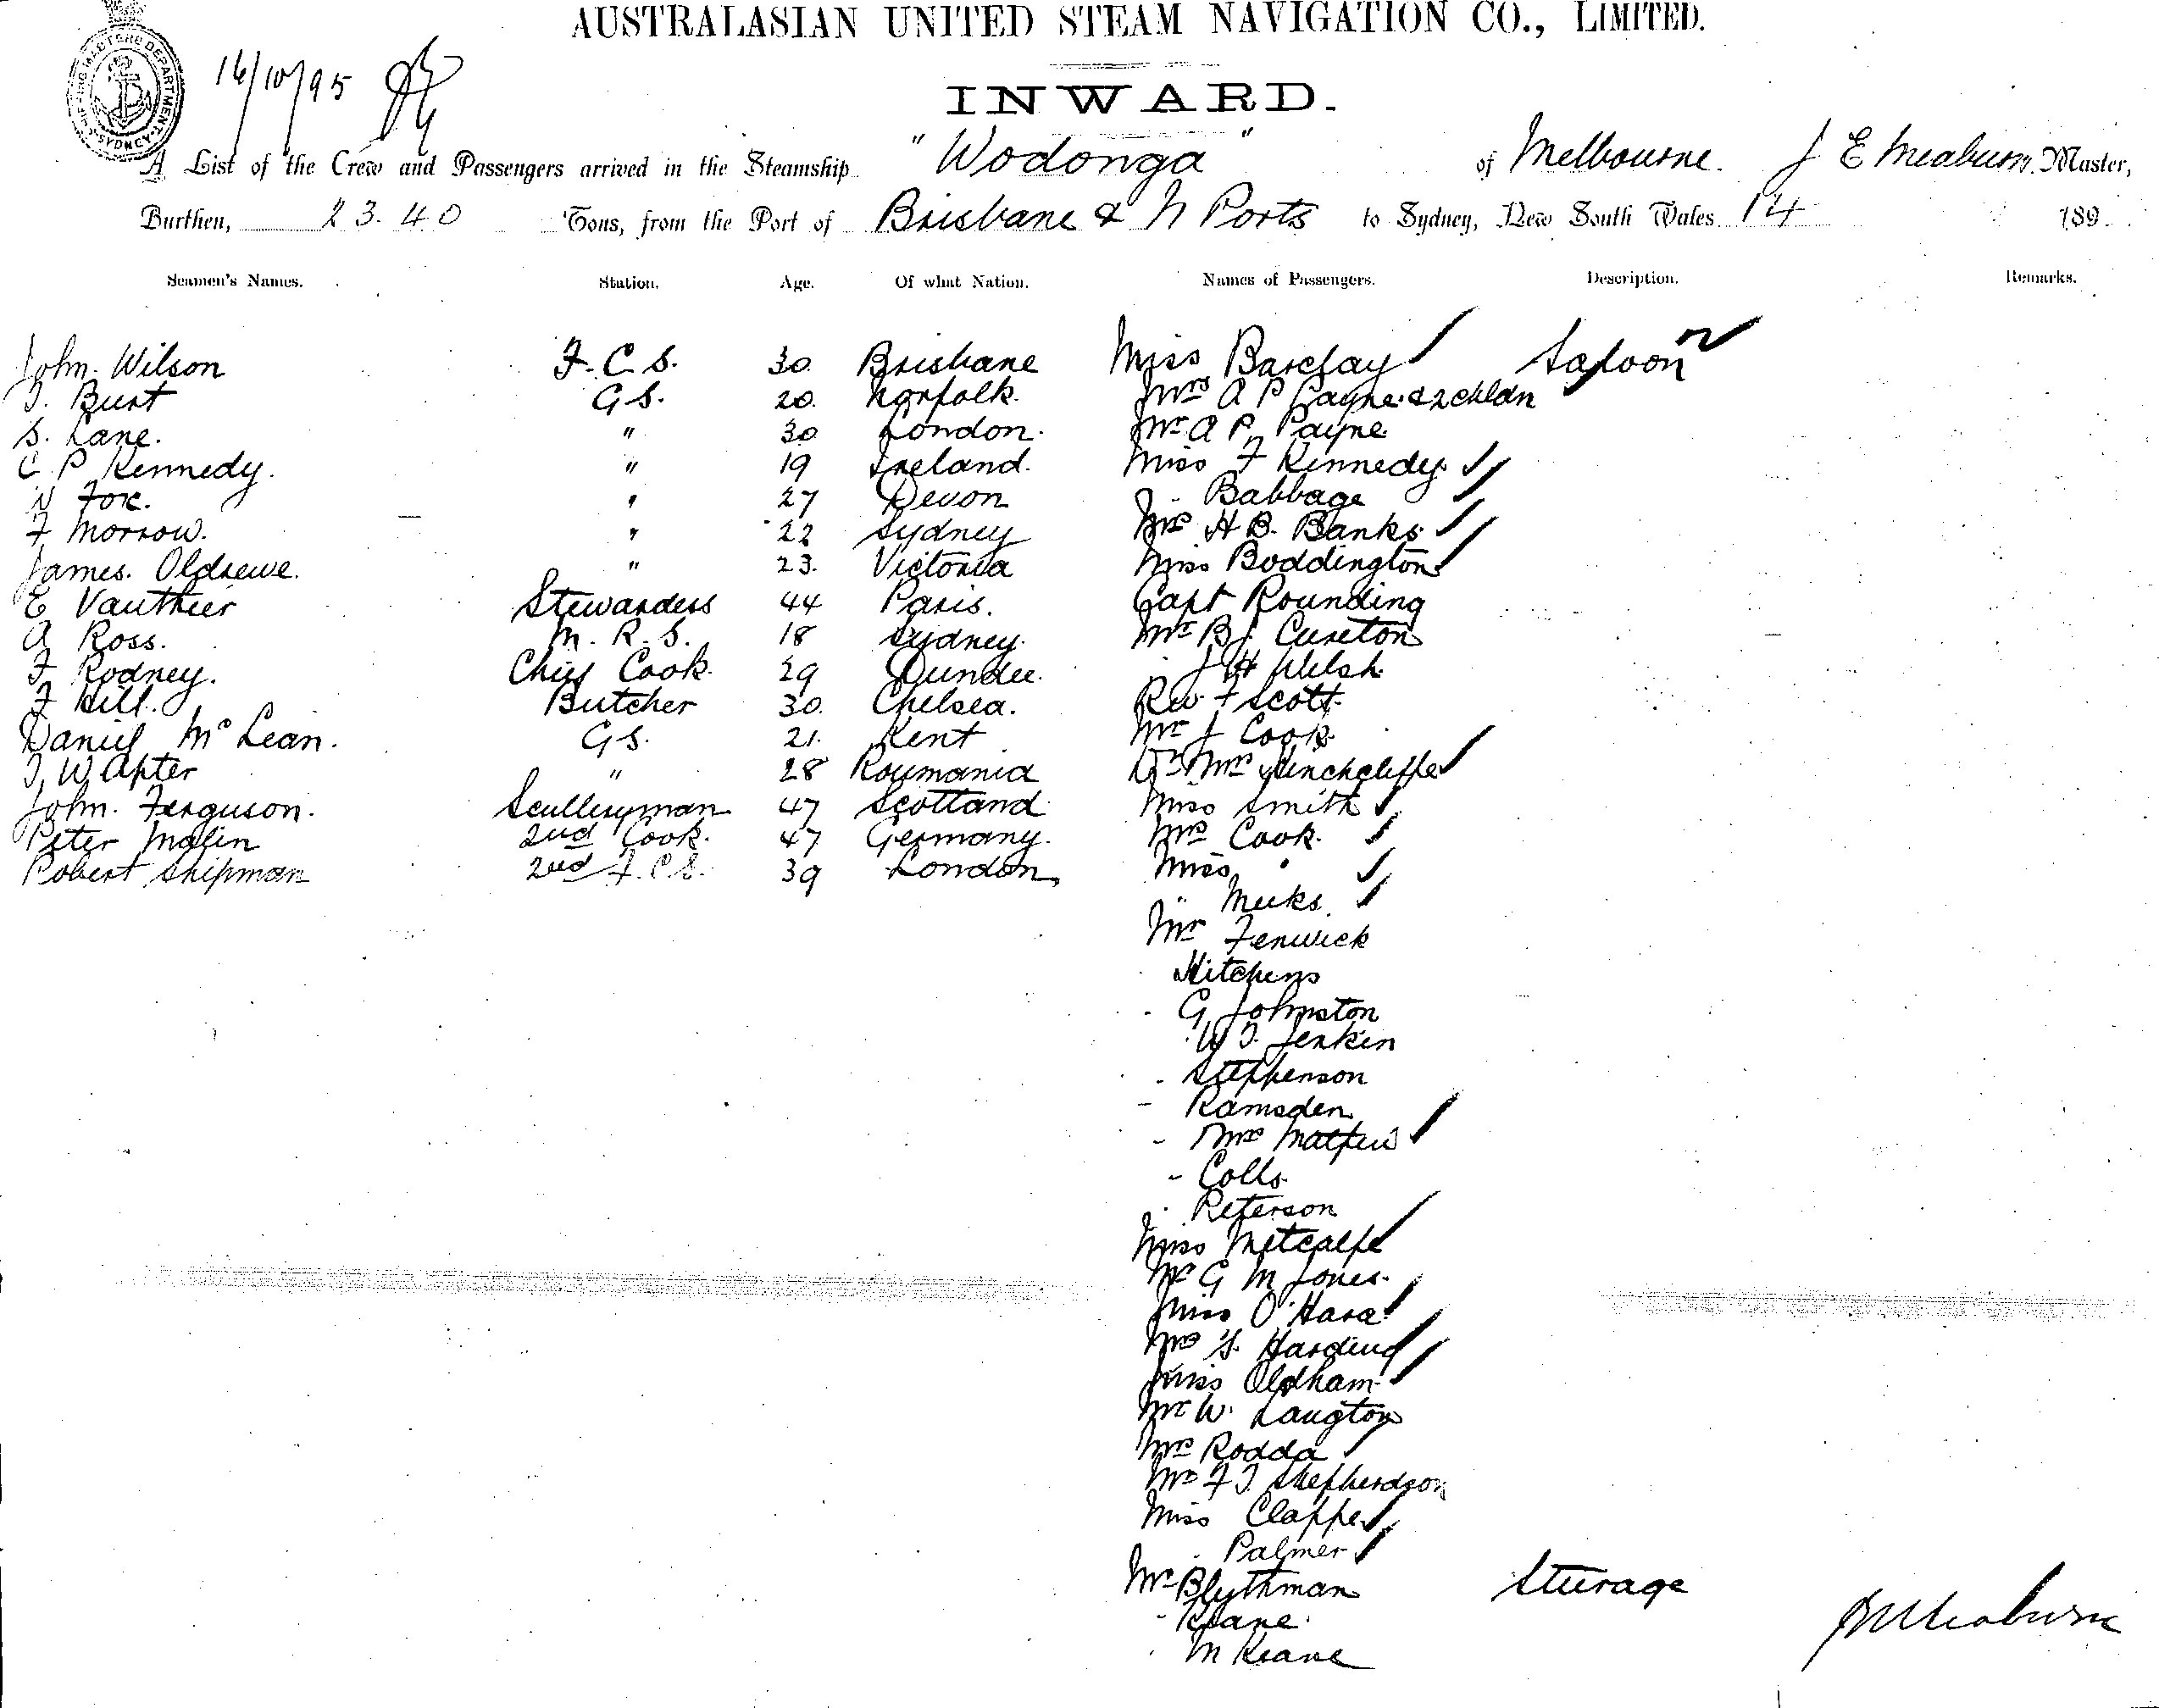 AUSTRALASIAN UNITED STEAM NAVIGATION CO., LIMITED.
SHIPPING MASTERS DEPARTMENT SYDNEY
16/10/95
INWARD.
A List of the Crew and Passengers arrived in the Steamship "Wodonga" of Melbourne. J E Meaburn. Master,
Burthen, 23.40 Tons, from the Port of Brisbane & N Ports to Sydney, New South Wales 14 189
Seamen's Names. Station. Age. Of what Nation. Names of Passengers. Description. Remarks.
John Wilson F.C.S. 30 Brisbane Miss Barclay Saloon
T. Burt G.S. 20. Norfolk. Mrs A P Payne & 2 chldn
S. Lane. " 30 London. Mr A P Payne
C P Kennedy. " 19 Ireland. Miss F Kennedy
N Fox. " 27 Devon " Babbage
F Morrow. " 22 Sydney Mrs H B. Banks
James. Oldrewe. " 23. Victoria Miss Boddington
E Vauthier Stewardess 44 Paris. Capt Rounding
A Ross. M.R.S. 18 Sydney. Mr B J Cureton
F Rodney. Chief Cook. 29 Dundee. J H Welsh
F Hill. Butcher 30. Chelsea. Rev F Scott
Daniel McLean. G.S. 21. Kent Mr J Cook
J. W. Apter " 28 Roumania Dr Mrs Hinchcliffe
John. Ferguson. Sculleryman 47 Scotland Miss Smith
Peter Malin 2nd Cook. 47 Germany. Mrs Cook.
Robert Shipman 2nd F.C.S. 39 London Miss "
" Meeks
Mr Fenwick
Hitchens
- G Johnston
W J. Jenkin
- Stephenson
- Ramsden
- Mrs Mathew
- Colls
Peterson
Miss Metcalfe
Mr G M Jones
Miss O'Hara
Mrs S. Harding
Miss Oldham
Mr W. Langton
Mrs Rodda
Mr F J Shepherdson
Miss Clapper
Palmer
Mr Blythman Sturage
- Keane
M Keane
J E Meaburn